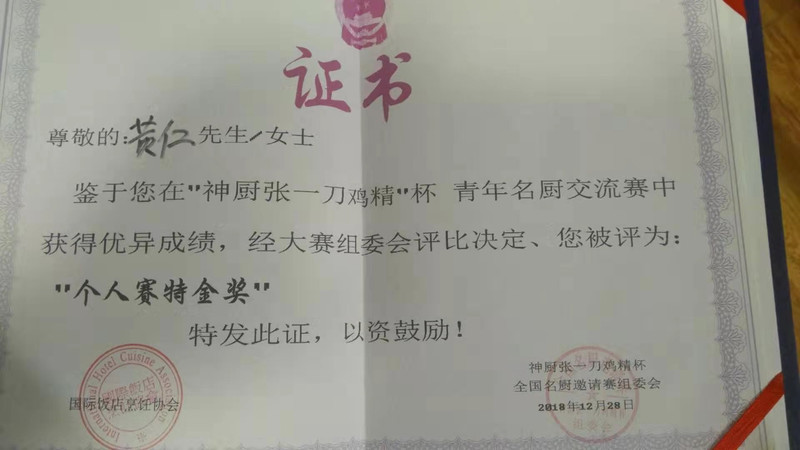 证书
尊敬的:黄仁先生/女士
鉴于您在"神厨张一刀鸡精"杯 青年名厨交流赛中
获得优异成绩，经大赛组委会评比决定、您被评为:
"个人赛特金奖"
特发此证，以资鼓励！
International Hotel Cuisine Association
国际饭店
国际饭店烹饪协会
神厨张一刀鸡精杯
全国名厨邀请赛组委会
2018年12月28日
组委会